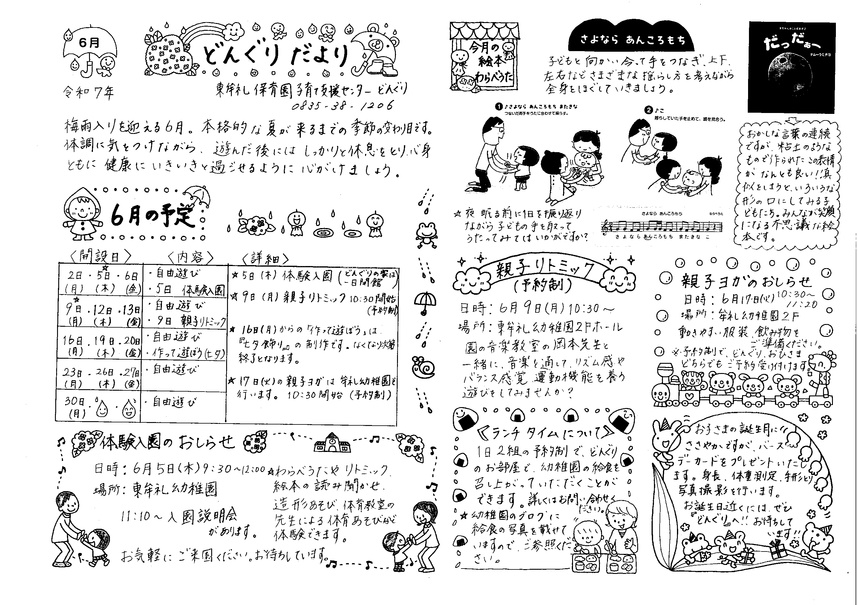 6月
どんぐり だより
令和7年
東牟礼保育園子育て支援センター どんぐり
0835-38-1206
梅雨入りを迎える6月。本格的な夏が来るまでの季節の変わり目です。
体調に気をつけながら、遊んだ後には しっかりと休息をとり、心身
ともに 健康に いきいきと過ごせるように 心がけましょう。
6月の予定
〈開設日〉 〈内容〉 〈詳細〉
2日・5日・6日
(月) (木) (金)
・自由遊び
・5日 体験入園
9日・12日・13日
(月) (木) (金)
・自由遊び
・9日 親子リトミック
16日・19日・20日
(月) (木) (金)
・自由遊び
・作って遊ぼう(七夕)
23日・26日・27日
(月) (木) (金)
・自由遊び
30日
(月)
・自由遊び
★5日(木) 体験入園
★9日(月) 親子リトミック 10:30開始
(予約制)
★16日(月)からの『作って遊ぼう』は、
『七夕飾り』の制作です。なくなり次第
終了となります。
★17日(火)の親子ヨガは牟礼幼稚園で
行います。10:30開始(予約制)
体験入園のおしらせ
日時:6月5日(木)9:30〜12:00
場所:東牟礼幼稚園
11:10〜入園説明会
があります。
★わらべうたや リトミック、
絵本の読み聞かせ、
造形あそび、体育教室の
先生による体育あそびなど
体験できます。
お気軽に ご来園ください。お待ちしています。
今月の
絵本
わらべうた
さよなら あんころもち
子どもと向かい合って手をつなぎ、上下、
左右などさまざまな揺らし方を考えながら
全身をほぐしていきましょう。
1 ♪さよなら あんころもち またきな
つないだ両手をうたに合わせて揺らす。
2 ♪こ
揺らしていた手を止めて、顔を見合う。
★夜 眠る前に1日を振り返り
ながら 子どもの手を取って
うたってみてはいかがですか?
さよなら あんころもち
さ よ な ら あ ん こ ろ も ち ま た き な こ
だっだぁー
おかしな言葉の連続
ですが、粘土のような
もので作られたこの表情
がなんとも良い!!真
似をしようと、いろいろな
形の口にしてみる子
どもたち。みんなが笑顔
になる不思議な絵
本です。
親子リトミック
(予約制)
日時:6月9日(月)10:30〜
場所:東牟礼幼稚園2Fホール
園の音楽教室の岡本先生と
一緒に、音楽を通して、リズム感や
バランス感覚、運動機能を養う
遊びをしてみませんか?
親子ヨガのおしらせ
日時:6月17日(火)10:30〜
11:20
場所:牟礼幼稚園2F
動きやすい服装、飲み物を
ご準備ください。
※予約制で、どんぐり、おひさま
どちらでもご予約受け付けます。
《ランチタイムについて》
1日2組の予約制で、どんぐり
のお部屋で、幼稚園の給食を
召し上がっていただくことが
できます。詳しくはお問い合わせく
ださい。
★幼稚園のブログに
給食の写真を載せて
いますので、ご参照くだ
さい。
お子さまの誕生月に
ささやかですが、バース
デーカードをプレゼントいたし
ます。身長、体重測定、手形と
写真撮影を行います。
お誕生日近くには、ぜひ
『どんぐり』へ!!お待ちして
います!!